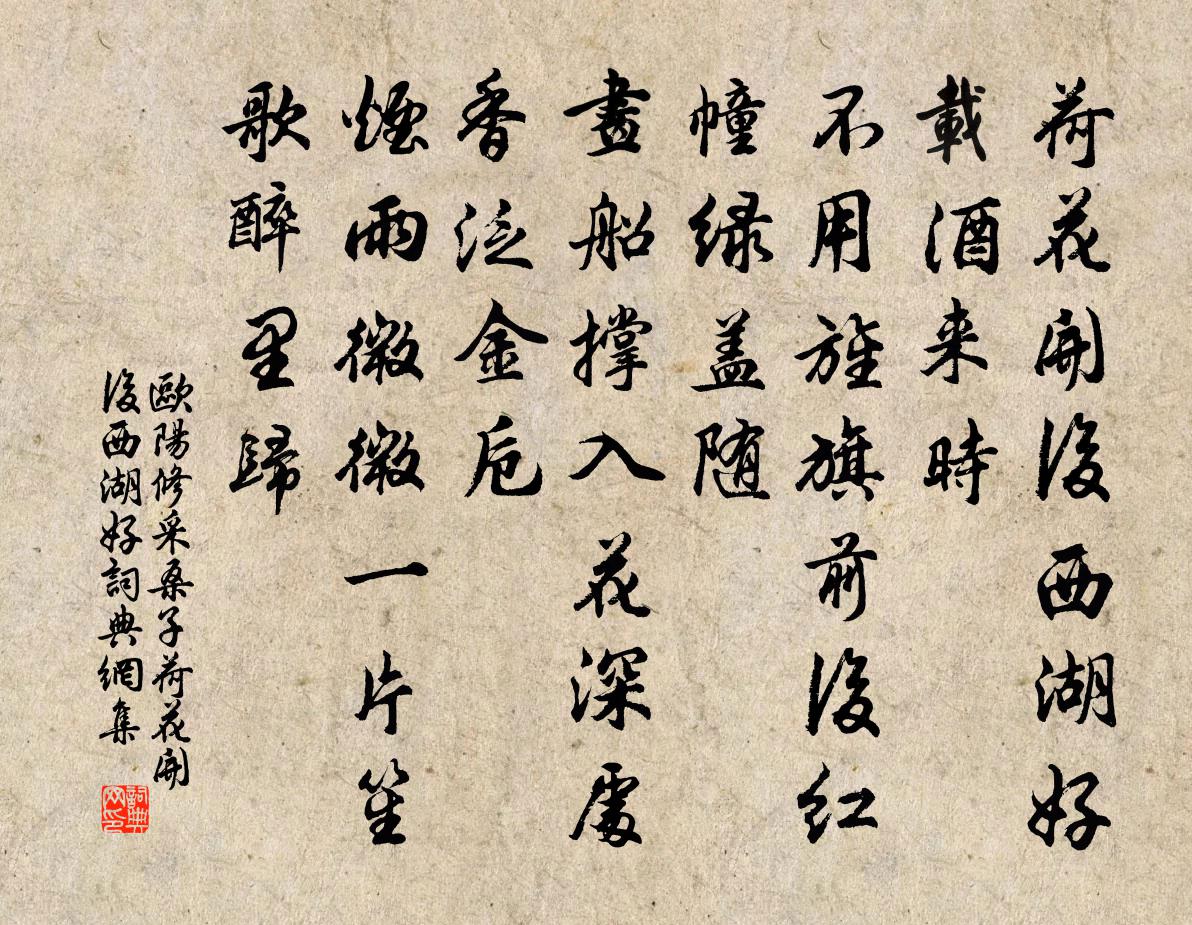 荷花開後西湖好
載酒来時
不用旌旗前後红
幢绿盖随
畫船撑入花深處
香泛金卮
煙雨微微一片笙
歌醉里歸
歐陽修采桑子荷花開
後西湖好詞典網集
詞典
网印